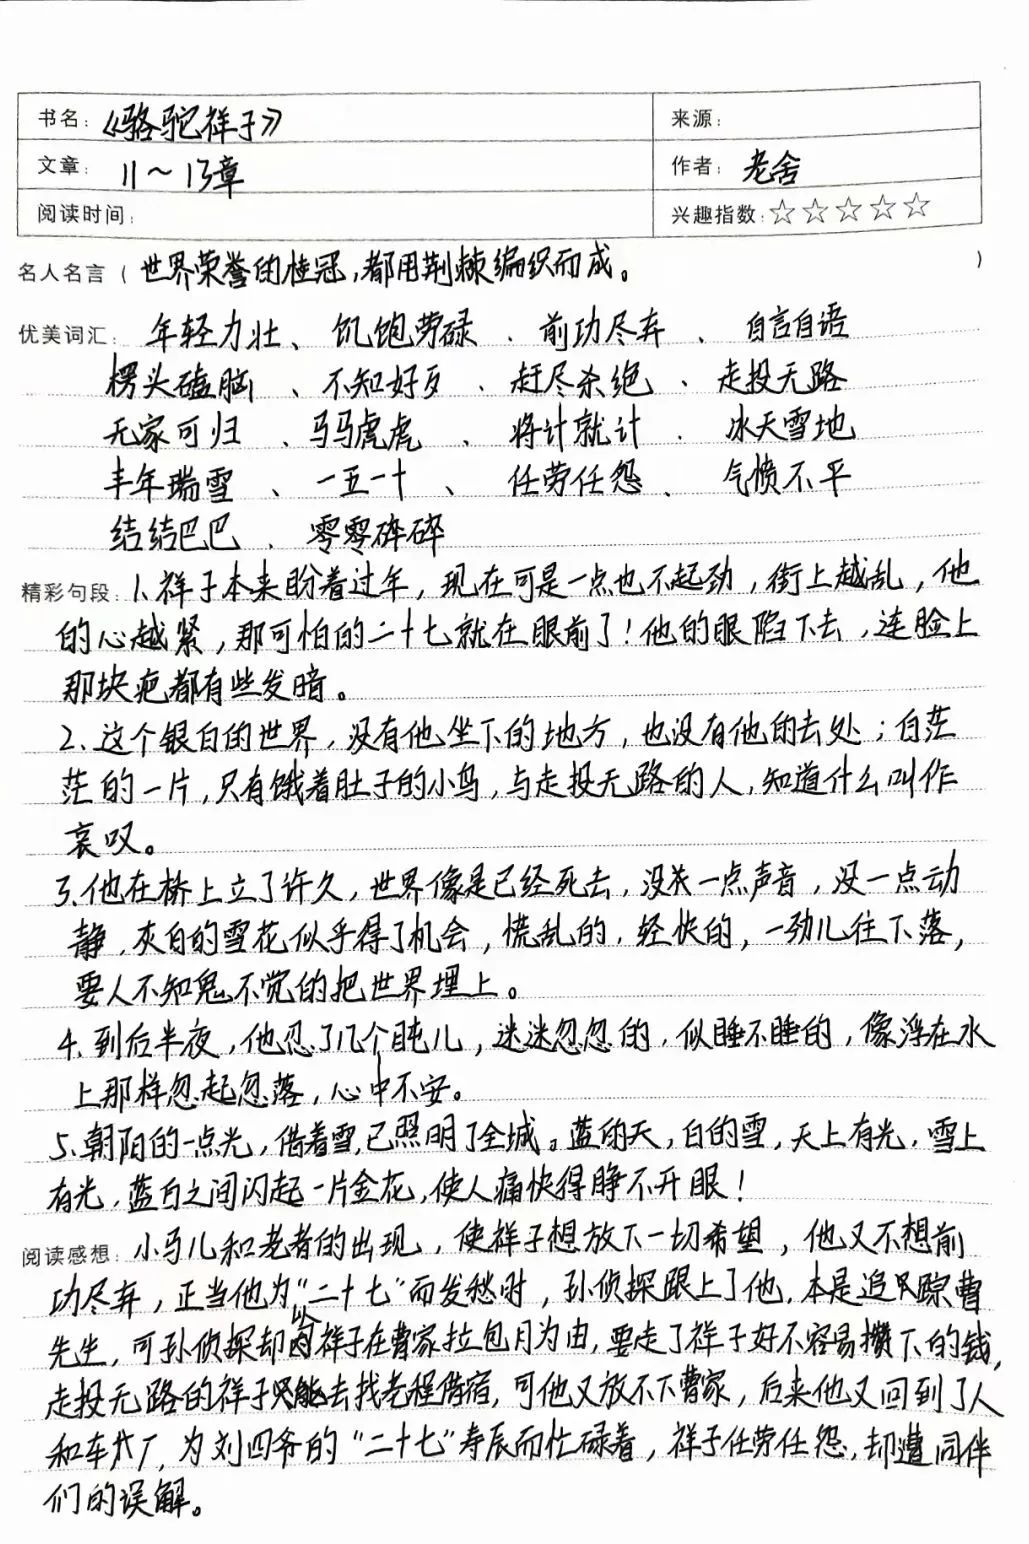 书名：《骆驼祥子》 来源：
文章：11～13章 作者：老舍
阅读时间： 兴趣指数：☆☆☆☆☆
名人名言（世界荣誉的桂冠，都用荆棘编织而成。）
优美词汇：年轻力壮、饥饱劳碌、前功尽弃、自言自语
楞头磕脑、不知好歹、赶尽杀绝、走投无路
无家可归、马马虎虎、将计就计、冰天雪地
丰年瑞雪、一五一十、任劳任怨、气愤不平
结结巴巴、零零碎碎
精彩句段：1.祥子本来盼着过年，现在可是一点也不起劲，街上越乱，他
的心越紧，那可怕的二十七就在眼前了！他的眼陷下去，连脸上
那块疤都有些发暗。
2、这个银白的世界，没有他坐下的地方，也没有他的去处；白茫
茫的一片，只有饿着肚子的小鸟，与走投无路的人，知道什么叫作
哀叹。
3、他在桥上立了许久，世界像是已经死去，没一点声音，没一点动
静，灰白的雪花似乎得了机会，慌乱的，轻快的，一劲儿往下落，
要人不知鬼不觉的把世界埋上。
4、到后半夜，他忍了几个盹儿，迷迷忽忽的，似睡不睡的，像浮在水
上那样忽起忽落，心中不安。
5、朝阳的一点光，借着雪，已照明了全城。蓝的天，白的雪，天上有光，雪上
有光，蓝白之间闪起一片金花，使人痛快得睁不开眼！
阅读感想：小马儿和老者的出现，使祥子想放下一切希望，他又不想前
功尽弃，正当他为“二十七”而发愁时，孙侦探跟上了他，本是追踪曹
先生，可孙侦探却以祥子在曹家拉包月为由，要走了祥子好不容易攒下的钱，
走投无路的祥子只能去找老程借宿，可他又放不下曹家，后来他又回到了人
和车厂，为刘四爷的“二十七”寿辰而忙碌着，祥子任劳任怨，却遭同伴
们的误解。